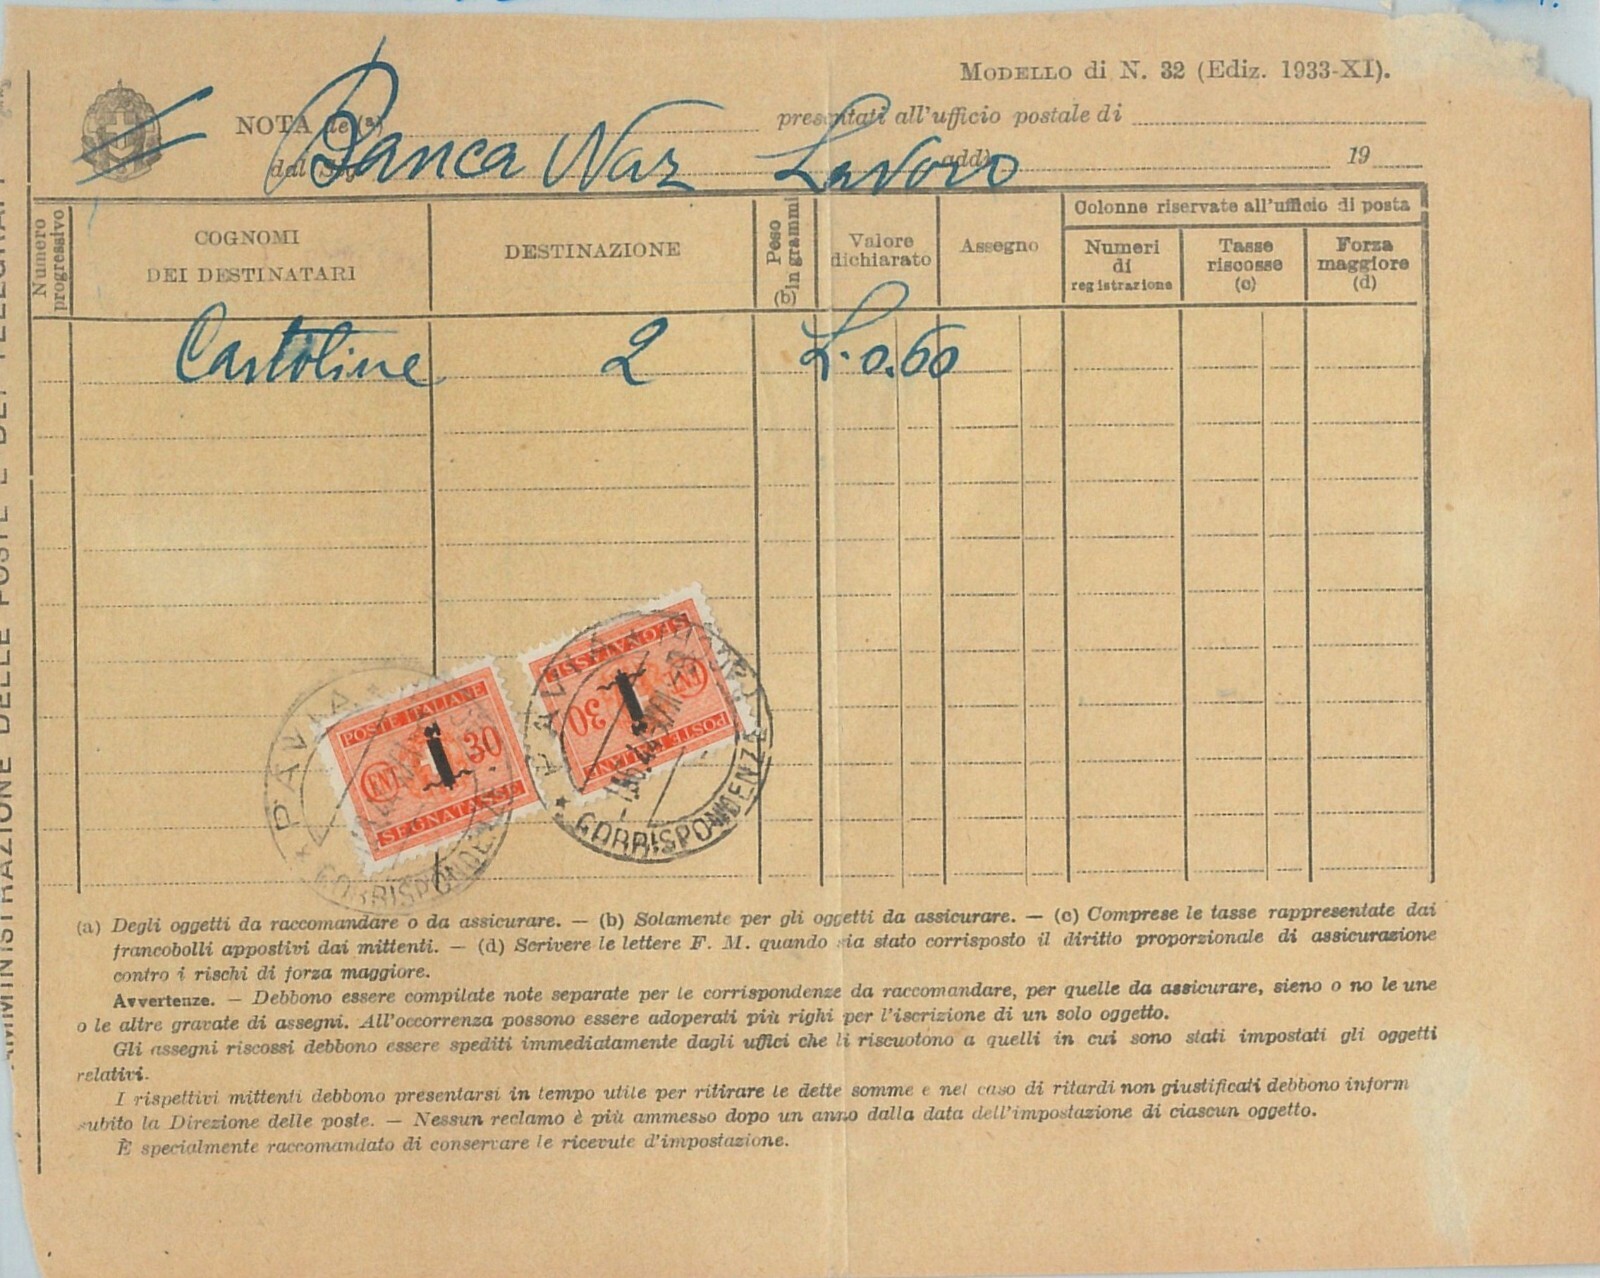 MODELLO di N. 32 (Ediz. 1933-XI).
NOTA de (a) presentati all'ufficio postale di
dal Sig. addì 19
Banca Naz Lavoro
Numero progressivo
COGNOMI
DEI DESTINATARI
DESTINAZIONE
Peso in grammi (b)
Valore
dichiarato
Assegno
Colonne riservate all'ufficio di posta
Numeri
di
registrazione
Tasse
riscosse
(c)
Forza
maggiore
(d)
Cartoline 2 L. 0.60
POSTE ITALIANE
CENT. 30
SEGNATASSE
POSTE ITALIANE
CENT. 30
SEGNATASSE
PAVIA
CORRISPONDENZE
PAVIA
CORRISPONDENZE
(a) Degli oggetti da raccomandare o da assicurare. — (b) Solamente per gli oggetti da assicurare. — (c) Comprese le tasse rappresentate dai
francobolli appostivi dai mittenti. — (d) Scrivere le lettere F. M. quando sia stato corrisposto il diritto proporzionale di assicurazione
contro i rischi di forza maggiore.
Avvertenze. — Debbono essere compilate note separate per le corrispondenze da raccomandare, per quelle da assicurare, sieno o no le une
o le altre gravate di assegni. All'occorrenza possono essere adoperati più righi per l'iscrizione di un solo oggetto.
Gli assegni riscossi debbono essere spediti immediatamente dagli uffici che li riscuotono a quelli in cui sono stati impostati gli oggetti
relativi.
I rispettivi mittenti debbono presentarsi in tempo utile per ritirare le dette somme e nel caso di ritardi non giustificati debbono inform
subito la Direzione delle poste. — Nessun reclamo è più ammesso dopo un anno dalla data dell'impostazione di ciascun oggetto.
È specialmente raccomandato di conservare le ricevute d'impostazione.
AMMINISTRAZIONE DELLE POSTE E DEI TELEGRAFI